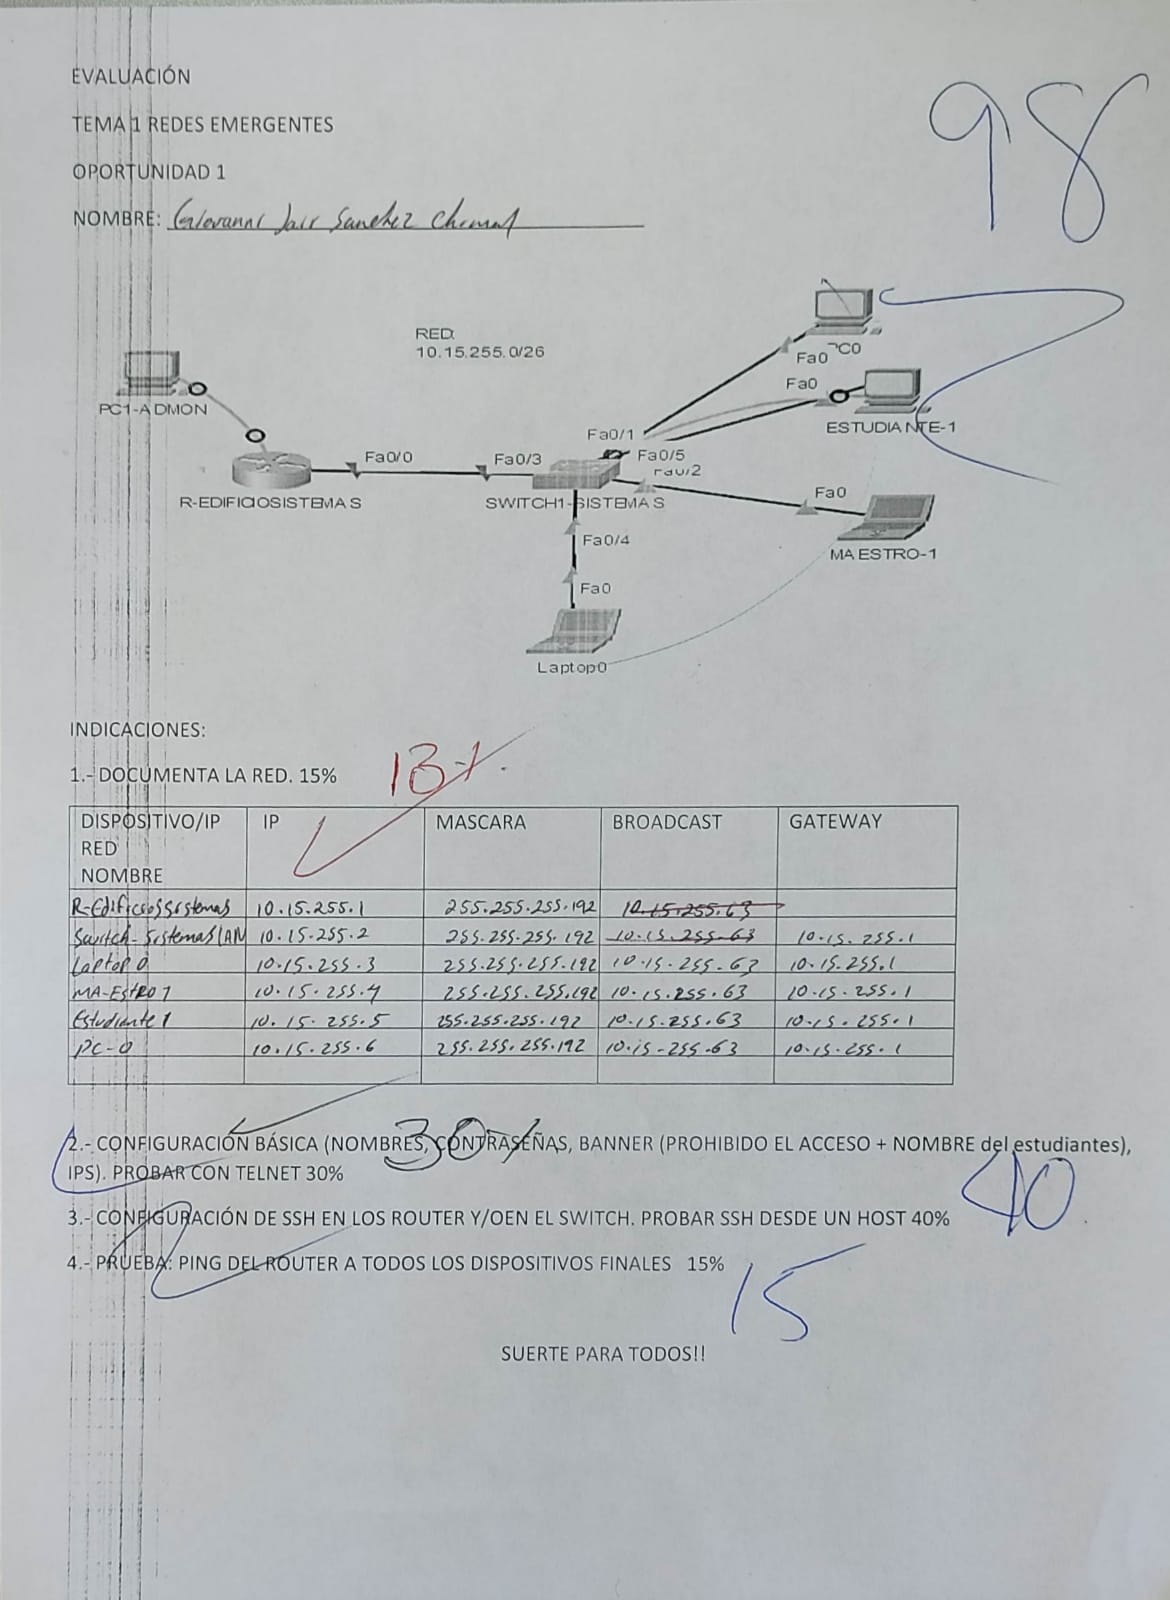 EVALUACIÓN
98
TEMA 1 REDES EMERGENTES
OPORTUNIDAD 1
NOMBRE: Giovanni Jair Sanchez
RED:
10.15.255.0/26
PC0
Fa0
Fa0
PC1-ADMON
ESTUDIANTE-1
Fa0/1
Fa0/0
Fa0/3
Fa0/5
Fa0/2
R-EDIFICIOSISTEMAS
SWITCH1-SISTEMAS
Fa0
Fa0/4
MAESTRO-1
Fa0
Laptop0
INDICACIONES:
1.- DOCUMENTA LA RED. 15% 13%
DISPOSITIVO/IP RED NOMBRE IP MASCARA BROADCAST GATEWAY
R-EdificiosSistemas 10.15.255.1 255.255.255.192 10.15.255.63
Switch-Sistemas 10.15.255.2 255.255.255.192 10.15.255.63 10.15.255.1
Laptop 0 10.15.255.3 255.255.255.192 10.15.255.63 10.15.255.1
MA-EstRO 1 10.15.255.4 255.255.255.192 10.15.255.63 10.15.255.1
Estudiante 1 10.15.255.5 255.255.255.192 10.15.255.63 10.15.255.1
PC-0 10.15.255.6 255.255.255.192 10.15.255.63 10.15.255.1
30%
2.- CONFIGURACIÓN BÁSICA (NOMBRES, CONTRASEÑAS, BANNER (PROHIBIDO EL ACCESO + NOMBRE del estudiantes),
IPS). PROBAR CON TELNET 30%
3.- CONFIGURACIÓN DE SSH EN LOS ROUTER Y/OEN EL SWITCH. PROBAR SSH DESDE UN HOST 40% 40
4.- PRUEBA: PING DEL ROUTER A TODOS LOS DISPOSITIVOS FINALES 15%
15
SUERTE PARA TODOS!!